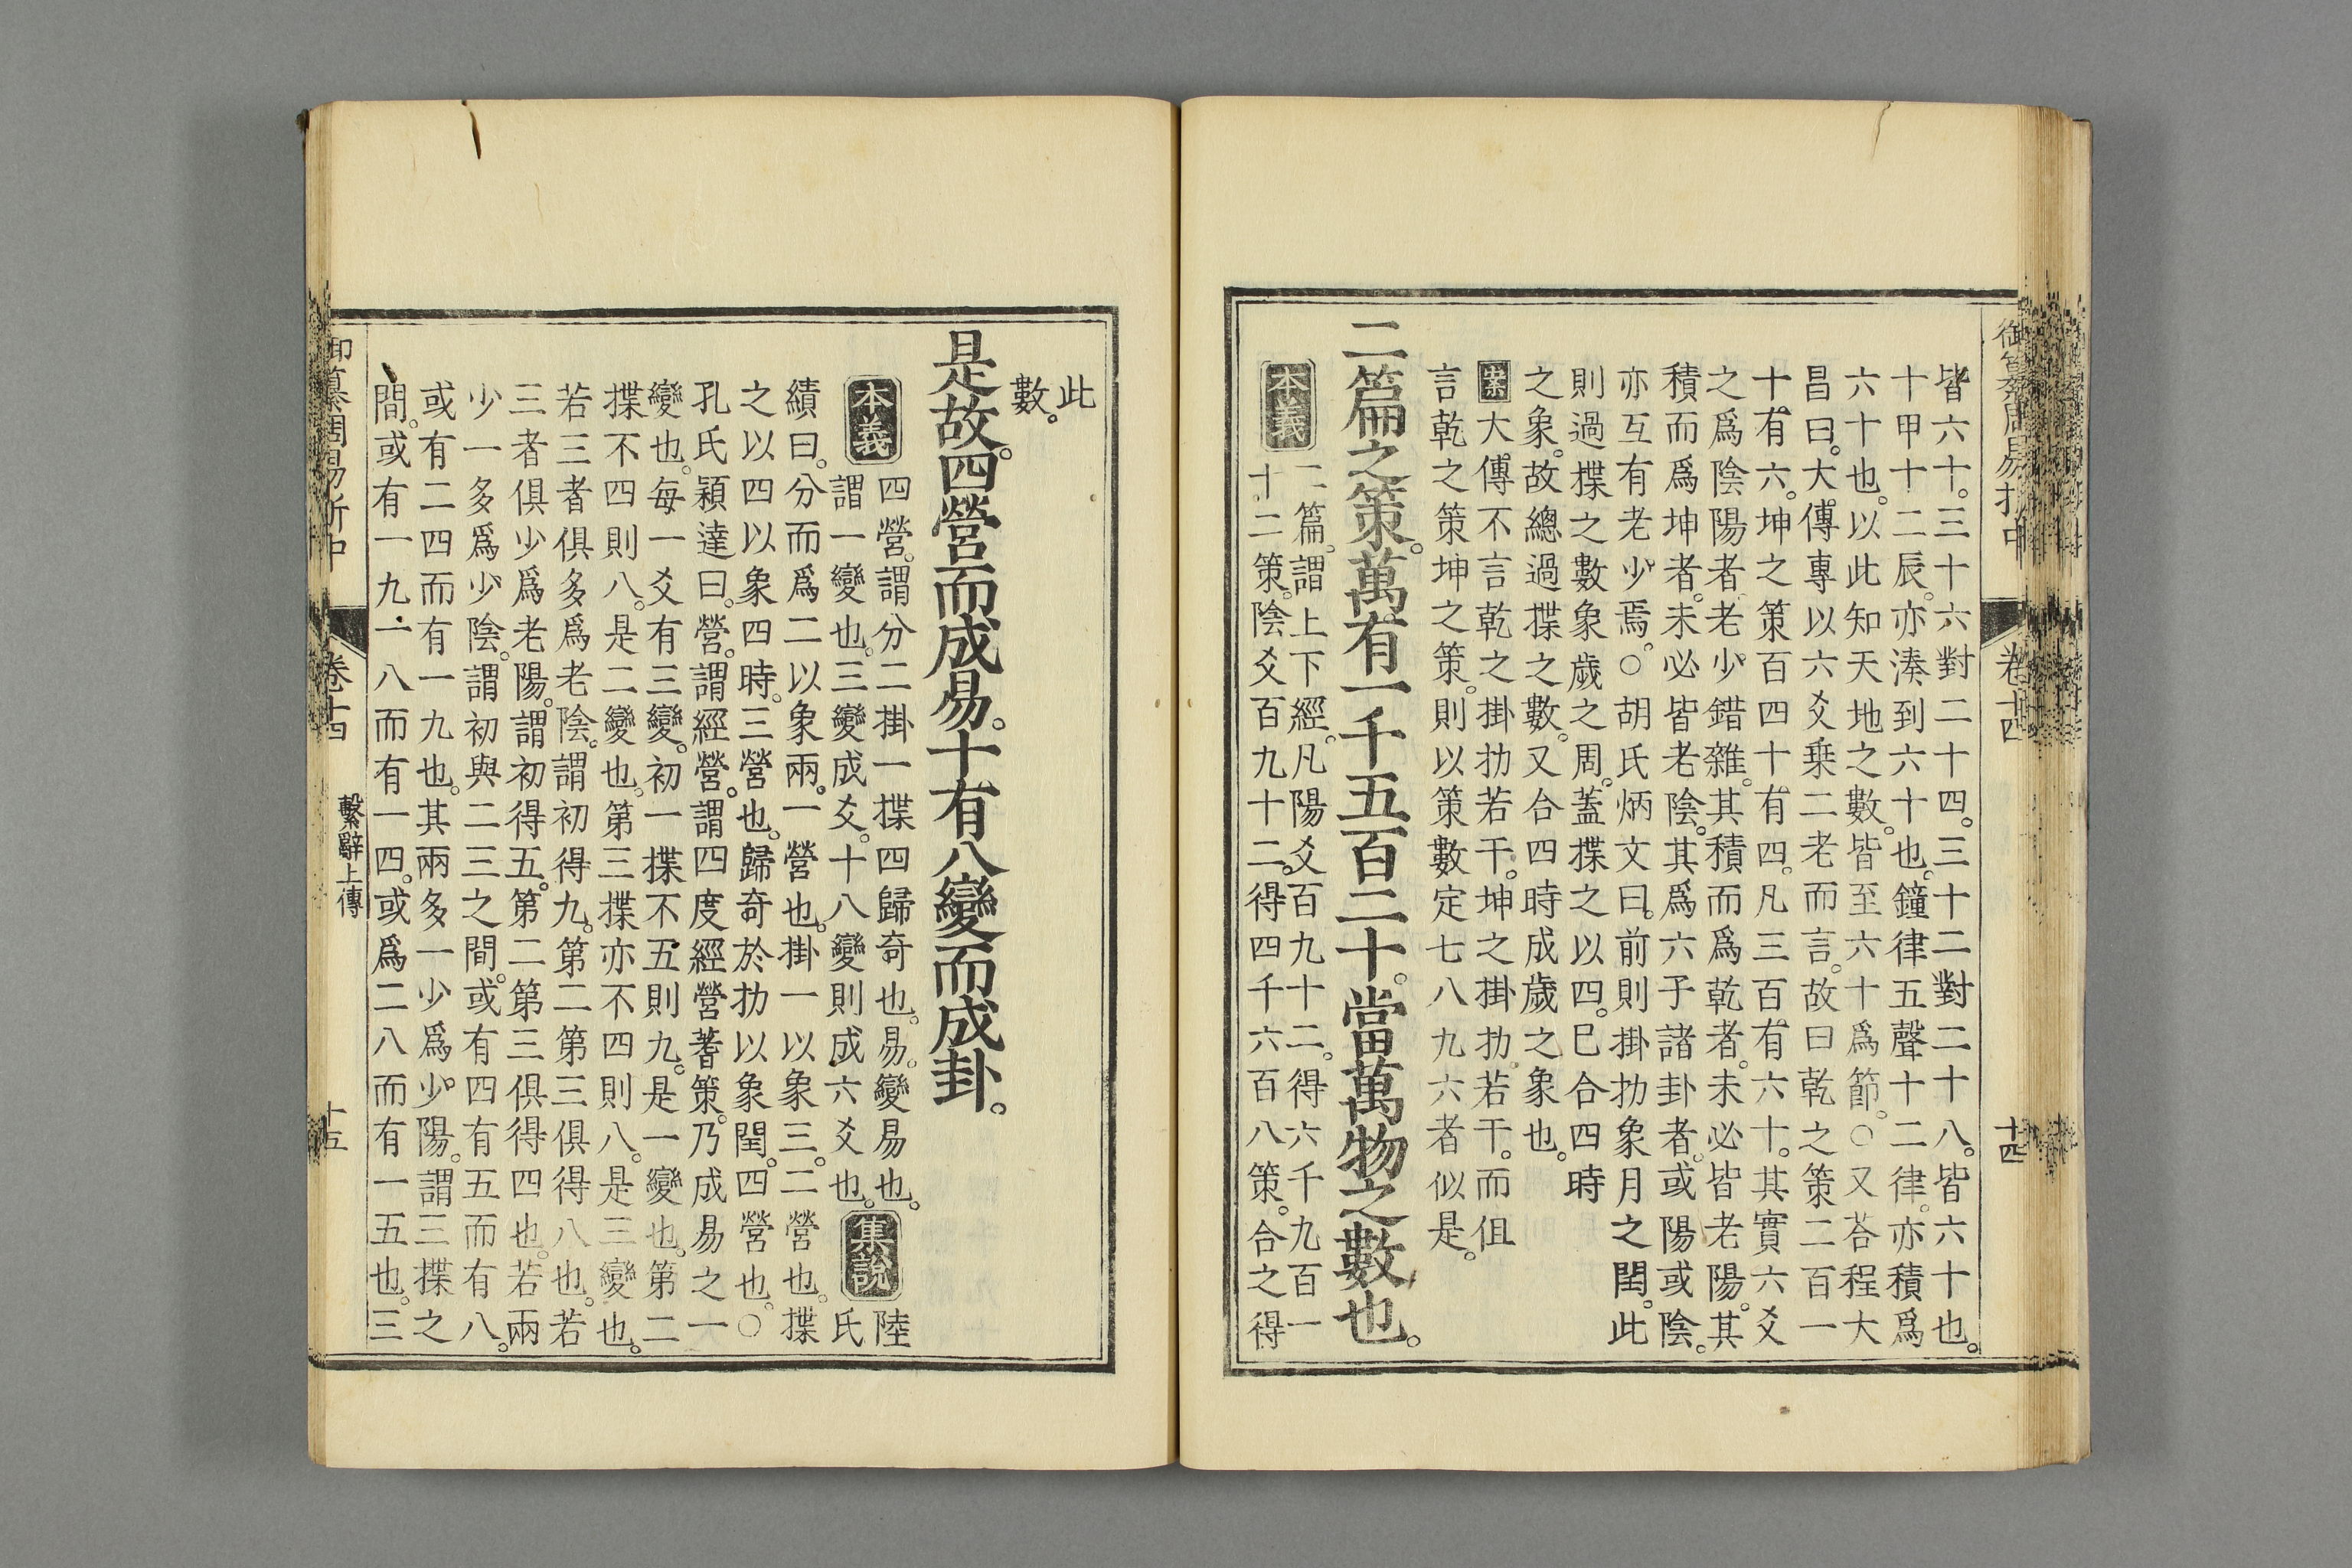 御纂周易折中
卷十四
十四
皆六十。三十六對二十四。三十二對二十八。皆六十也。
十甲十二辰。亦湊到六十也。鐘律五聲十二律。亦積爲
六十也。以此知天地之數。皆至六十爲節。○又荅程大
昌曰。大傳專以六爻乗二老而言。故曰乾之策二百一
十有六。坤之策百四十有四。凡三百有六十。其實六爻
之爲陰陽者老少錯雜。其積而爲乾者。未必皆老陽。其
積而爲坤者。未必皆老陰。其爲六子諸卦者。或陽或陰。
亦互有老少焉。○胡氏炳文曰。前則掛扐象月之閏。此
則過揲之數象歲之周。蓋揲之以四。巳合四時
之象。故總過揲之數。又合四時成歲之象也。
案大傳不言乾之掛扐若干。坤之掛扐若干。而但
言乾之策坤之策。則以策數定七八九六者似是。
二篇之策。萬有一千五百二十。當萬物之數也。
本義
二篇。謂上下經。凡陽爻百九十二。得六千九百一
十二策。陰爻百九十二。得四千六百八策。合之得
此
數。
是故。四營而成易。十有八變而成卦。
本義
四營。謂分二掛一揲四歸奇也。易。變易也。
謂一變也。三變成爻。十八變則成六爻也。
集說
陸
氏
績曰。分而爲二以象兩。一營也。掛一以象三。二營也。揲
之以四以象四時。三營也。歸奇於扐以象閏。四營也。○
孔氏穎達曰。營。謂經營。謂四度經營蓍策。乃成易之一
變也。每一爻有三變。初一揲不五則九。是一變也。第二
揲不四則八。是二變也。第三揲亦不四則八。是三變也。
若三者俱多爲老陰。謂初得九。第二第三俱得八也。若
三者俱少爲老陽。謂初得五。第二第三俱得四也。若兩
少一多爲少陰。謂初與二三之間。或有四有五而有八。
或有二四而有一九也。其兩多一少爲少陽。謂三揲之
間。或有一九一八而有一四。或爲二八而有一五也。三
御纂周易折中
卷十四
繫辭上傳
十五